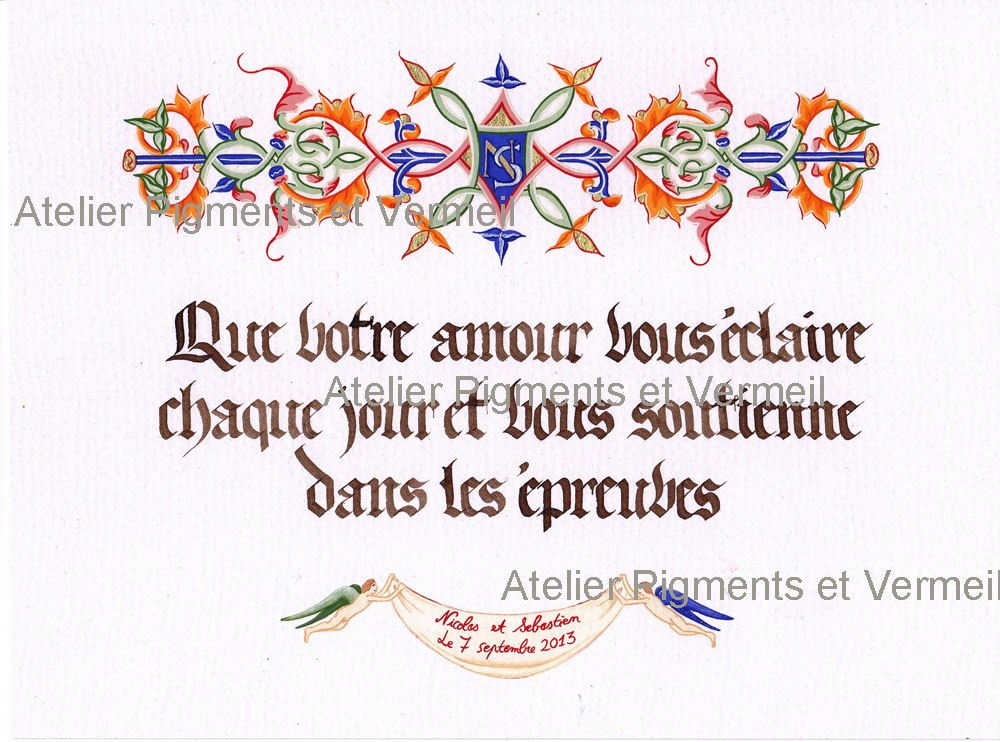 NS
Atelier Pigments et Vermeil
Que votre amour vous éclaire
Atelier Pigments et Vermeil
chaque jour et vous soutienne
dans les épreuves
Atelier Pigments et Vermeil
Nicolas et Sebastien
Le 7 septembre 2013